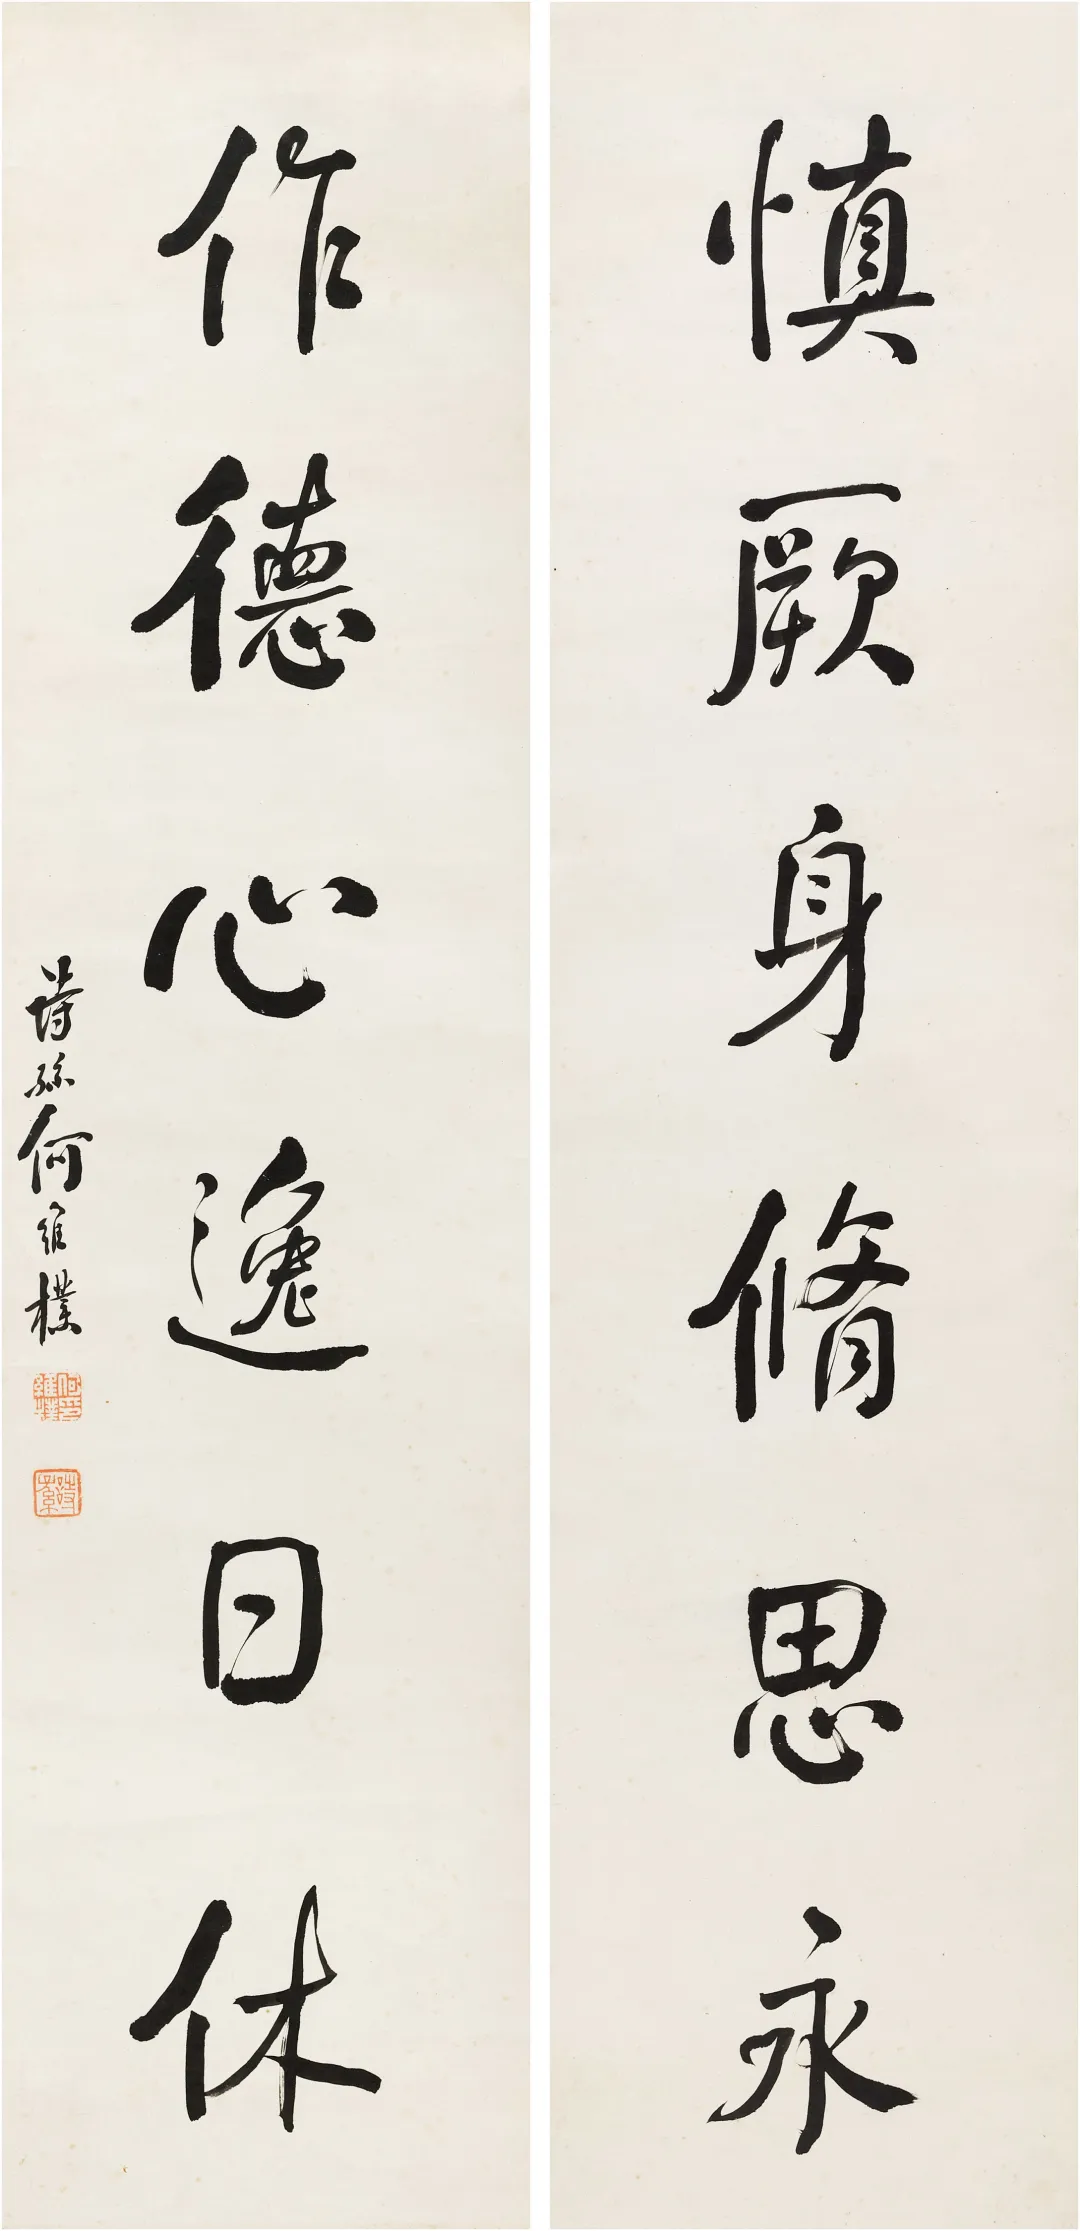 慎厥身脩思永
作德心逸日休
詩孫何維樸
何維樸印
詩孫